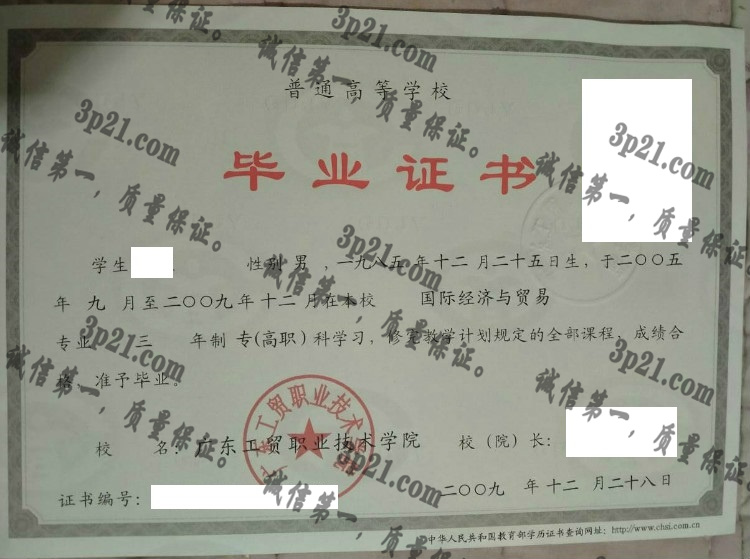 普通高等学校
毕业证书
学生 性别 男 ,一九八五 年 十二 月 二十五日生,于二〇〇五
年 九 月至二〇〇九年 十二 月在本校 国际经济与贸易
专业 三 年制 专(高职)科学习,修完教学计划规定的全部课程,成绩合
格,准予毕业。
校 名:广东工贸职业技术学院 校(院)长:
证书编号: 二〇〇九 年 十二 月 二十八日
中华人民共和国教育部学历证书查询网址:http://www.chsi.com.cn
广东工贸职业技术学院
3p21.com
诚信第一,质量保证。
3p21.com
诚信第一,质量保证。
3p21.com
诚信第一,质量保证。
3p21.com
诚信第一,质量保证。
3p21.com
诚信第一,质量保证。
3p21.com
诚信第一,质量保证。
3p21.com
诚信第一,质量保证。
3p21.com
诚信第一,质量保证。